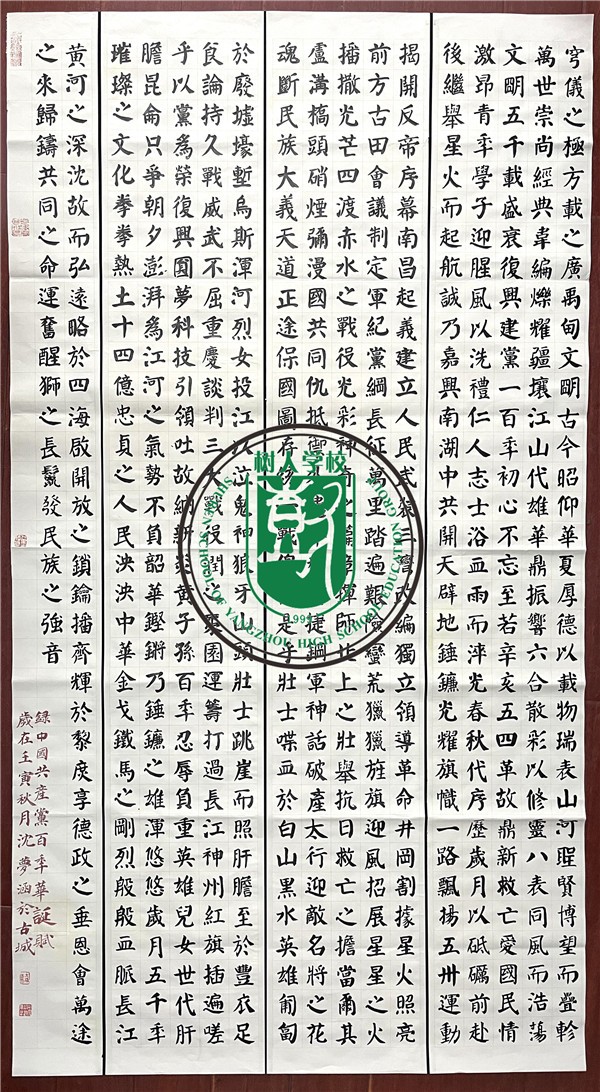 穹儀之極方載之廣禹甸文明古今昭仰華夏厚德以載物瑞表山河聖賢博望而疊軫
萬世崇尚經典韋編爍耀疆壤江山代雄華鼎振響六合散彩以修靈八表同風而浩蕩
文明五千載盛衰復興建黨一百年初心不忘至若辛亥五四革故鼎新救亡愛國民情
激昂青年學子迎腥風以洗禮仁人志士浴血雨而淬光春秋代序歷歲月以砥礪前赴
後繼舉星火而起航誠乃嘉興南湖中共開天辟地錘鐮光耀旗幟一路飄揚五卅運動
揭開反帝序幕南昌起義建立人民武裝三灣改編獨立領導革命井岡割據星火照亮
前方古田會議制定軍紀黨綱長征萬里踏遍艱險蠻荒獵獵旌旗迎風招展星星之火
播撒光芒四渡赤水之戰役光彩神奇之篇章揮師北上之壯舉抗日救亡之擔當爾其
盧溝橋頭硝煙彌漫國共同仇抵御捷鋼軍神話破產太行迎敵名將之花
魂斷民族大義天道正途保國圖存戰是乎壯士喋血於白山黑水英雄匍匐
於廢墟壕塹烏斯渾河烈女投江以泣鬼神狼牙山頭壯士跳崖而照肝膽至於豐衣足
食論持久戰威武不屈重慶談判三大戰役園運籌打過長江神州紅旗插遍嗟
乎以黨為榮復興圓夢科技引領吐故納新炎黃子孫百年忍辱負重英雄兒女世代肝
膽昆侖只爭朝夕澎湃為江河之氣勢不負韶華鏗鏘乃錘鐮之雄渾悠悠歲月五千年
璀璨之文化拳拳熱土十四億忠貞之人民泱泱中華金戈鐵馬之剛烈殷殷血脈長江
黃河之深沈故而弘遠略於四海啟開放之鎖鑰播齊輝於黎庶享德政之垂恩會萬途
之來歸鑄共同之命運奮醒獅之長鬣發民族之強音
錄中國共產黨百年華誕賦
歲在壬寅秋月沈夢涵於古城
树人学校
SHUREN SCHOOL OF YANGZHOU HIGH SCHOOL EDUCATION GROUP